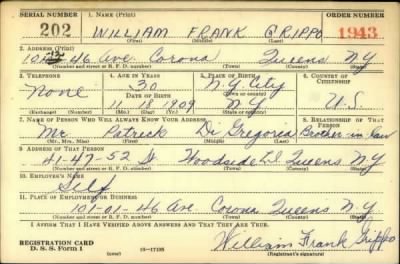 SERIAL NUMBER 1. NAME (Print) ORDER NUMBER
202 WILLIAM FRANK GRIPPO 1943
(First) (Middle) (Last)
2. ADDRESS (Print)
46 Ave Corona Queens NY
(Number and street or R. F. D. number) (Town) (County) (State)
3. TELEPHONE 4. AGE IN YEARS 5. PLACE OF BIRTH 6. COUNTRY OF CITIZENSHIP
None 30 N.Y. City
DATE OF BIRTH
11 18 1909 NY U.S.
(Exchange) (Number) (Mo.) (Day) (Yr.) (State or country)
7. NAME OF PERSON WHO WILL ALWAYS KNOW YOUR ADDRESS 8. RELATIONSHIP OF THAT PERSON
Mr Patrick Di Gregoria Brother-in-law
(Mr., Mrs., Miss) (First) (Middle) (Last)
9. ADDRESS OF THAT PERSON
41-47-52 St Woodside L I Queens NY
(Number and street or R. F. D. number) (Town) (County) (State)
10. EMPLOYER'S NAME
Self
11. PLACE OF EMPLOYMENT OR BUSINESS
101-01-46 Ave Corona Queens NY
(Number and street or R. F. D. number) (Town) (County) (State)
I AFFIRM THAT I HAVE VERIFIED ABOVE ANSWERS AND THAT THEY ARE TRUE.
REGISTRATION CARD
D. S. S. Form 1 (over) William Frank Grippo
(Registrant's signature)